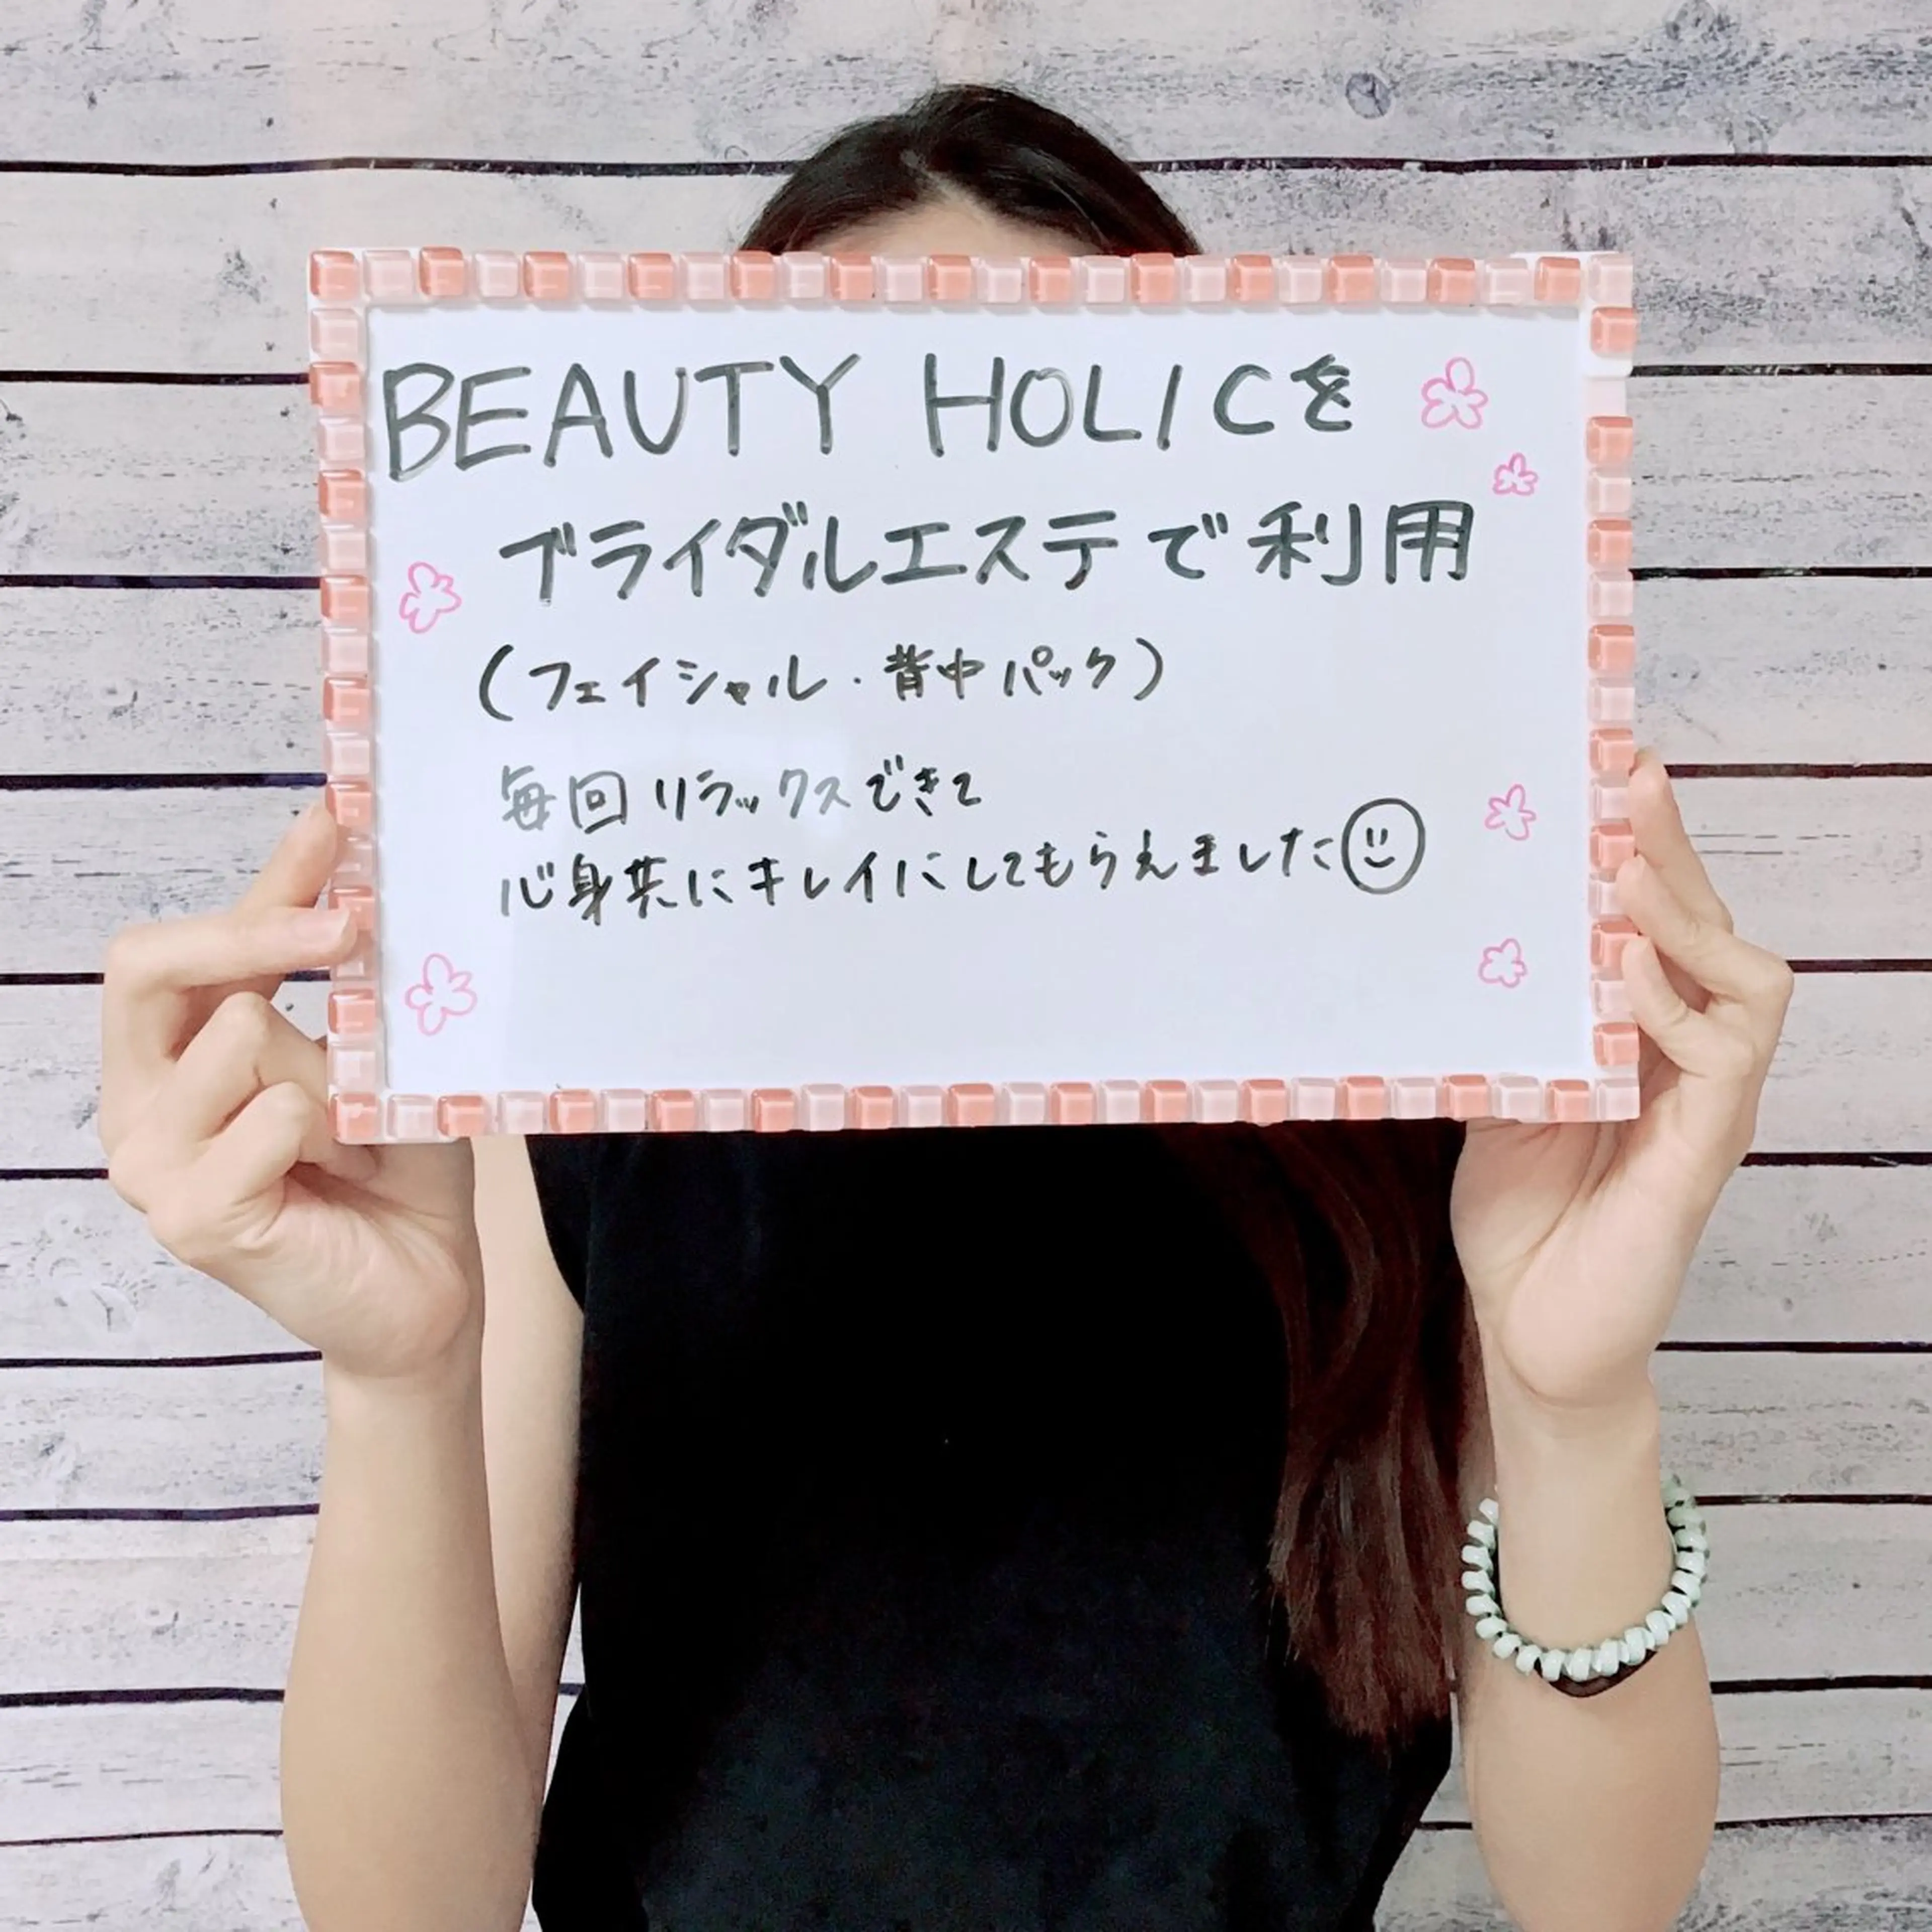 BEAUTY HOLICを
ブライダルエステで利用
(フェイシャル・背中パック)
毎回リラックスできて
心身共にキレイにしてもらえました